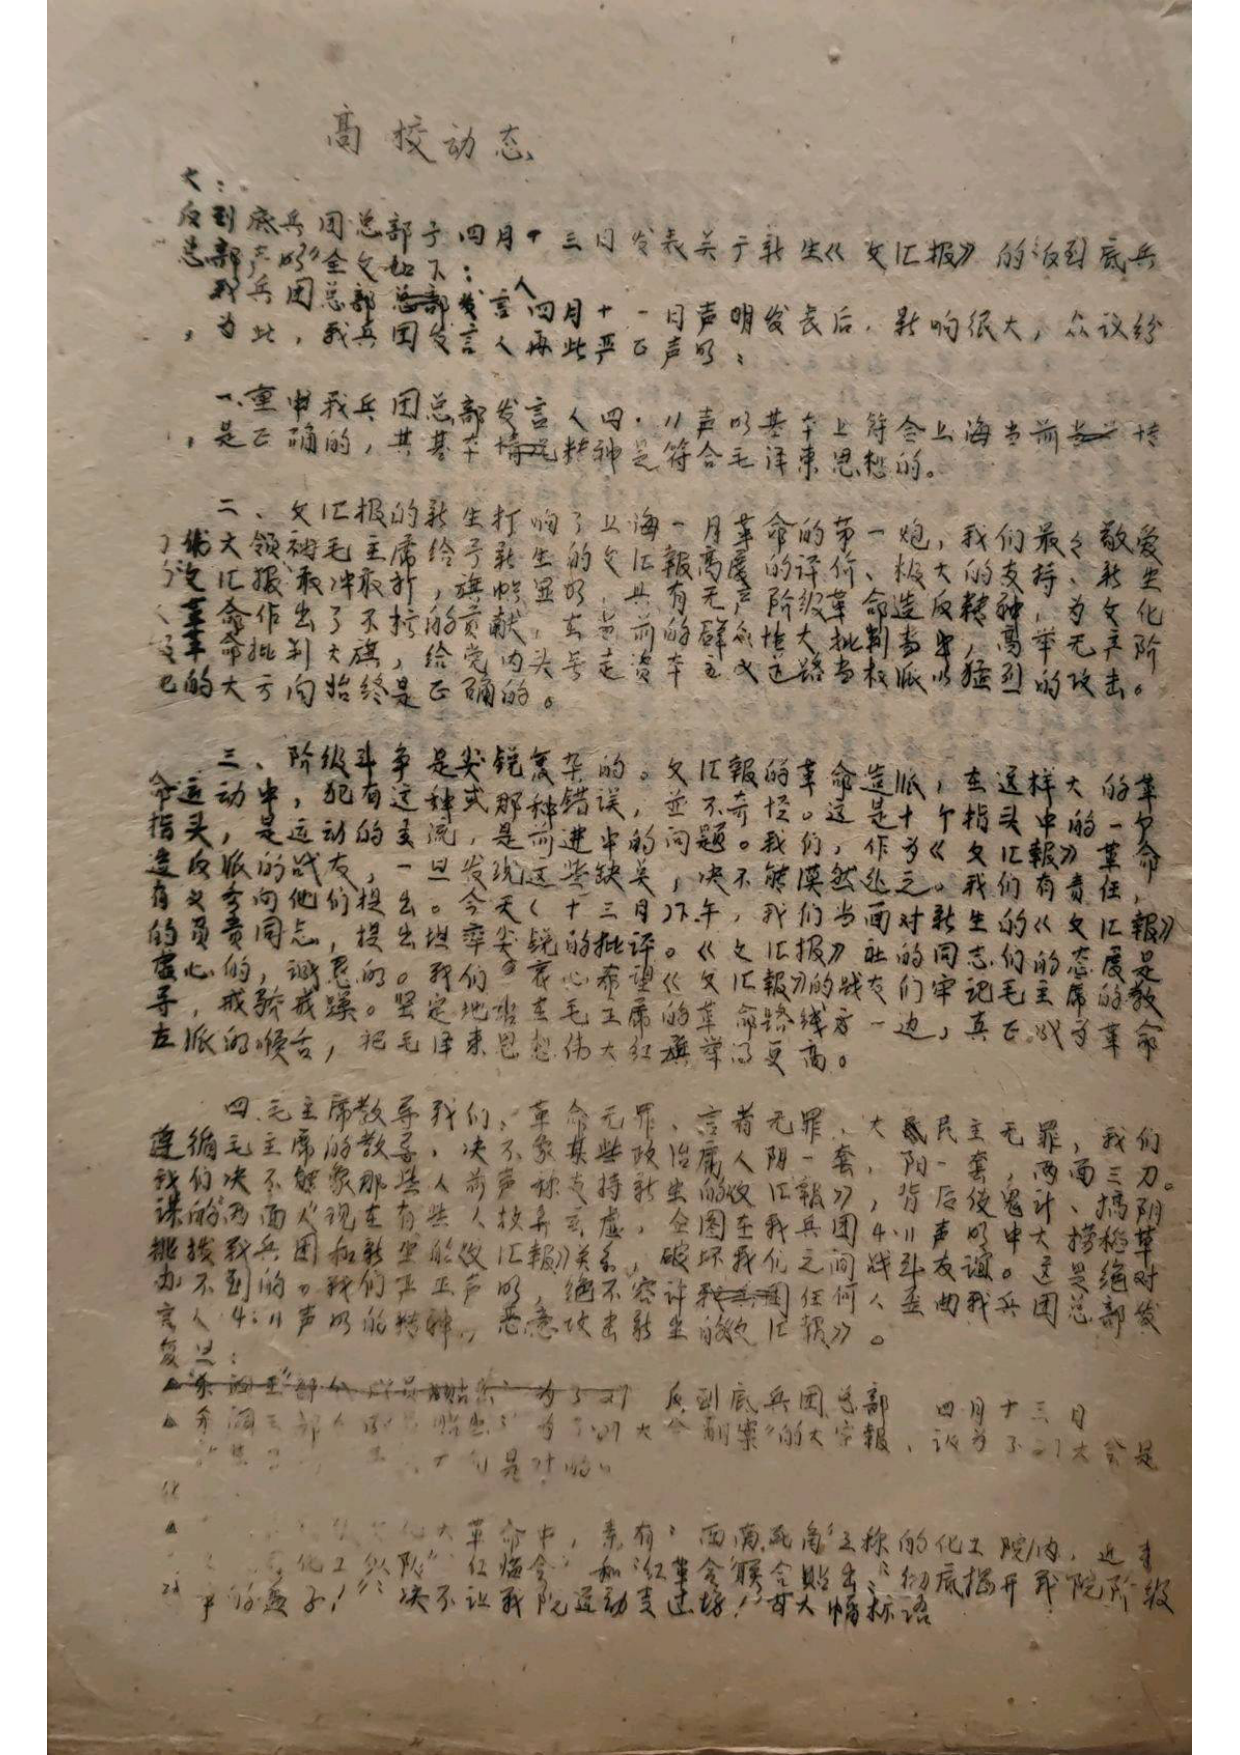 高校动态
大:
反到底兵团总部于四月十三日发表关于新生《文汇报》的“反到底兵
总部声明”全文如下:
我兵团总部发言人四月十一日声明发表后,影响很大,众议纷
,为此,我兵团发言人再此严正声明:
一、重申我兵团总部发言人四·11声明基本上符合上海当前 情
,是正确的,其基本精神是符合毛泽东思想的。
二、文汇报的新生打响了上海一月革命的第一炮,我们最々敬爱
伟大领袖毛主席给予新生的文汇報高度的评价、极大的支持、新生
文汇报敢冲敢打,旗帜显明,具有无产阶级革命造反精神,为文化
革命作出了不 的贡献,在当前的群众性大批判当中,高举无产阶
革命批判大旗,给党内头号走资本主义道路当权派以猛烈的攻击。
的大方向始终是正确的。
三、阶级斗争是尖锐复杂的。文汇報的革命造派,在这样大的革
命运动中,犯有这种或那种错误,並不奇怪。这是十个指头中的一个
指头,是运动的支流,是前进中的问题。我们,作为《文汇報》革命
造反派的战友,一旦发现这些缺关,决不能漠然处之。我们有责任,
有义务向他们提出。今天(十三日)下午,我们当面对新生的《文汇報》
的负责同志,提出坦率尖锐的批评。《文汇报》社的同志们的态度是
虚心的,诚恳的。我们衷心希望《文汇報》的战友们牢记毛主席的教
导,戒骄戒躁。坚定地站在毛主席的革命路线方一边,真正成为革命
左派的喉舌,把毛泽东思想伟大红旗举得更高。
四、毛主席教导我们,革命无罪、言者无罪、大民主无罪,我们
遵循毛主席的教导,决不象某些政治庸人阴一套,阳一套,两面三刀。
我们决不能象那些人前声称支持新生的《文汇報》,背后使鬼计、搞阴
谋的两面人。现在有些人故弄玄虚,企图在我兵团4·11声明中大捞稻草
挑拨我兵团和新生的《文汇報》关系,破坏我们之间战斗友谊。这是绝对
办不到的。我们严正声明,绝不容许任何人歪曲我兵团总部发
言人4·11声明的精神,恶意攻击新生的《文汇報》。
复旦:
反到底兵团总部 四月十三日
大会翻案”的大字報,认为 大会是
是对的
大革命中,素有“西南死角”之称的化工院内,近来
化工 “红 会”和“红革会”联合贴出“彻底揭开我院阶级
争的盖子!”“决不让我院运动走过场!”等大幅标语